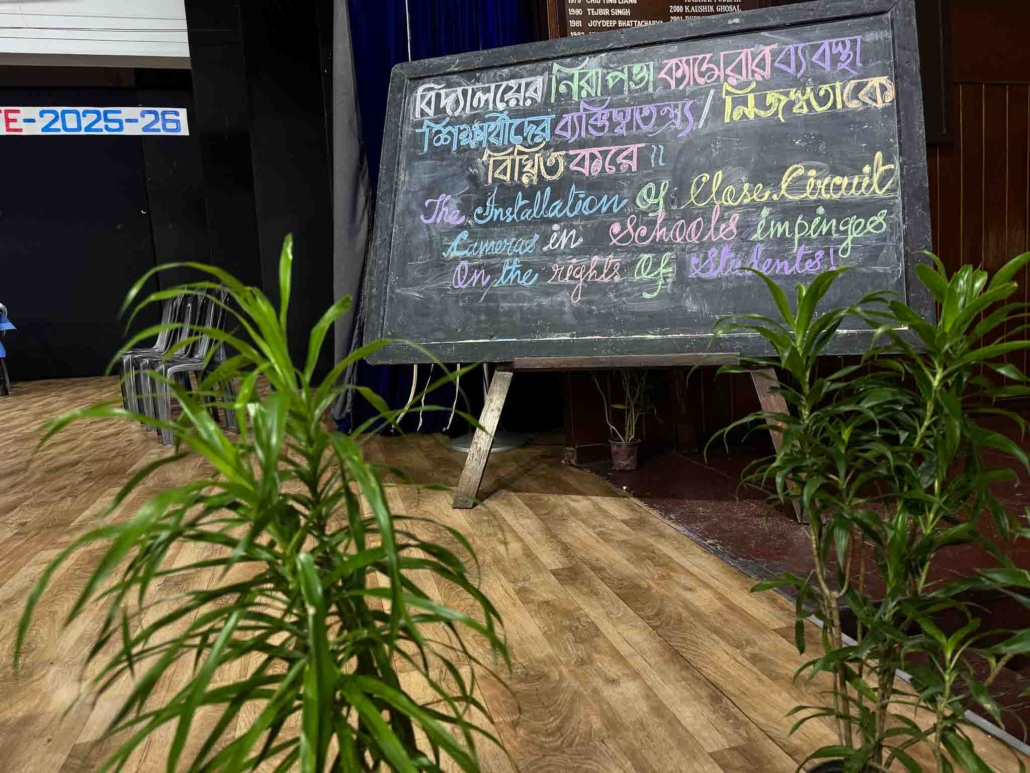 1980 TEJBIR SINGH
1981 JOYDEEP BHATTACHARYA
2000 KAUSHIK GHOSAL
TE-2025-26
বিদ্যালয়ের নিরাপত্তা ক্যামেরার ব্যবস্থা
শিক্ষার্থীদের ব্যক্তিস্বাতন্ত্র্য / নিজস্বতাকে
বিঘ্নিত করে ॥
The Installation of Close Circuit
Cameras in Schools impinges
On the rights Of Studentes!